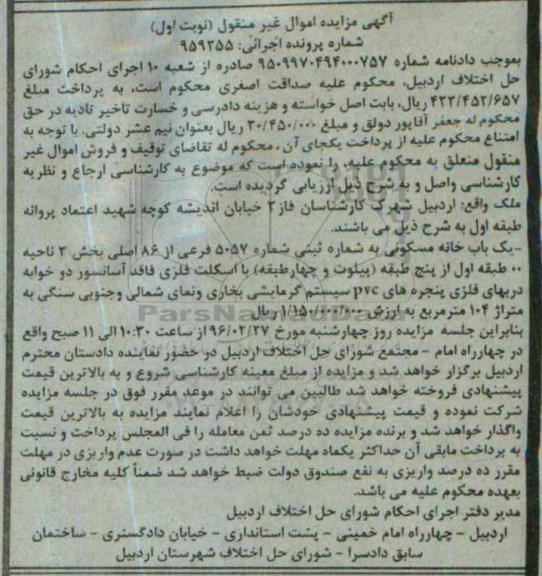 آگهی مزایده اموال غیر منقول (نوبت اول)
شماره پرونده اجرائی: ۹۵۹۳۵۵
بموجب دادنامه شماره ۹۵۰۹۹۷۰۴۹۴۰۰۰۷۵۷ صادره از شعبه ۱۰ اجرای احکام شورای
حل اختلاف اردبیل، محکوم علیه صداقت اصغری محکوم است، به پرداخت مبلغ
۴۲۲/۴۵۲/۶۵۷ ریال، بابت اصل خواسته و هزینه دادرسی و خسارت تاخیر تادیه در حق
محکوم له جعفر آقاپور دولق و مبلغ ۳۰/۴۵۰/۰۰۰ ریال بعنوان نیم عشر دولتی. با توجه به
امتناع محکوم علیه از پرداخت یکجای آن، محکوم له تقاضای توقیف و فروش اموال غیر
منقول متعلق به محکوم علیه، را نموده است که موضوع به کارشناسی ارجاع و نظریه
کارشناسی واصل و به شرح ذیل ارزیابی گردیده است.
ملک واقع: اردبیل شهرک کارشناسان فاز۲ خیابان اندیشه کوچه شهید اعتماد پروانه
طبقه اول به شرح ذیل می باشند.
-یک باب خانه مسکونی به شماره ثبتی شماره ۵۰۵۷ فرعی از ۸۶ اصلی بخش ۳ ناحیه
۰۰ طبقه اول از پنج طبقه (پیلوت و چهارطبقه) با اسکلت فلزی فاقد آسانسور دو خوابه
دربهای فلزی پنجره های pvc سیستم گرمایشی بخاری ونمای شمالی وجنوبی سنگی به
متراژ ۱۰۴ مترمربع به ارزش ۱/۱۵۰/۰۰۰/۰۰۰ ریال
ParsNamadData
بنابراین جلسه مزایده روز چهارشنبه مورخ ۹۶/۰۲/۲۷ از ساعت ۱۰:۳۰ الی ۱۱ صبح واقع
در چهارراه امام - مجتمع شورای حل اختلاف اردبیل در حضور نماینده دادستان محترم
اردبیل برگزار خواهد شد و مزایده از مبلغ معینه کارشناسی شروع و به بالاترین قیمت
پیشنهادی فروخته خواهد شد طالبین می توانند در موعد مقرر فوق در جلسه مزایده
شرکت نموده و قیمت پیشنهادی خودشان را اعلام نمایند مزایده به بالاترین قیمت
واگذار خواهد شد و برنده مزایده ده درصد ثمن معامله را فی المجلس پرداخت و نسبت
به پرداخت مابقی آن حداکثر یکماه مهلت خواهد داشت در صورت عدم واریزی در مهلت
مقرر ده درصد واریزی به نفع صندوق دولت ضبط خواهد شد ضمناً کلیه مخارج قانونی
بعهده محکوم علیه می باشد.
مدیر دفتر اجرای احکام شورای حل اختلاف اردبیل
اردبیل - چهارراه امام خمینی - پشت استانداری - خیابان دادگستری - ساختمان
سابق دادسرا - شورای حل اختلاف شهرستان اردبیل